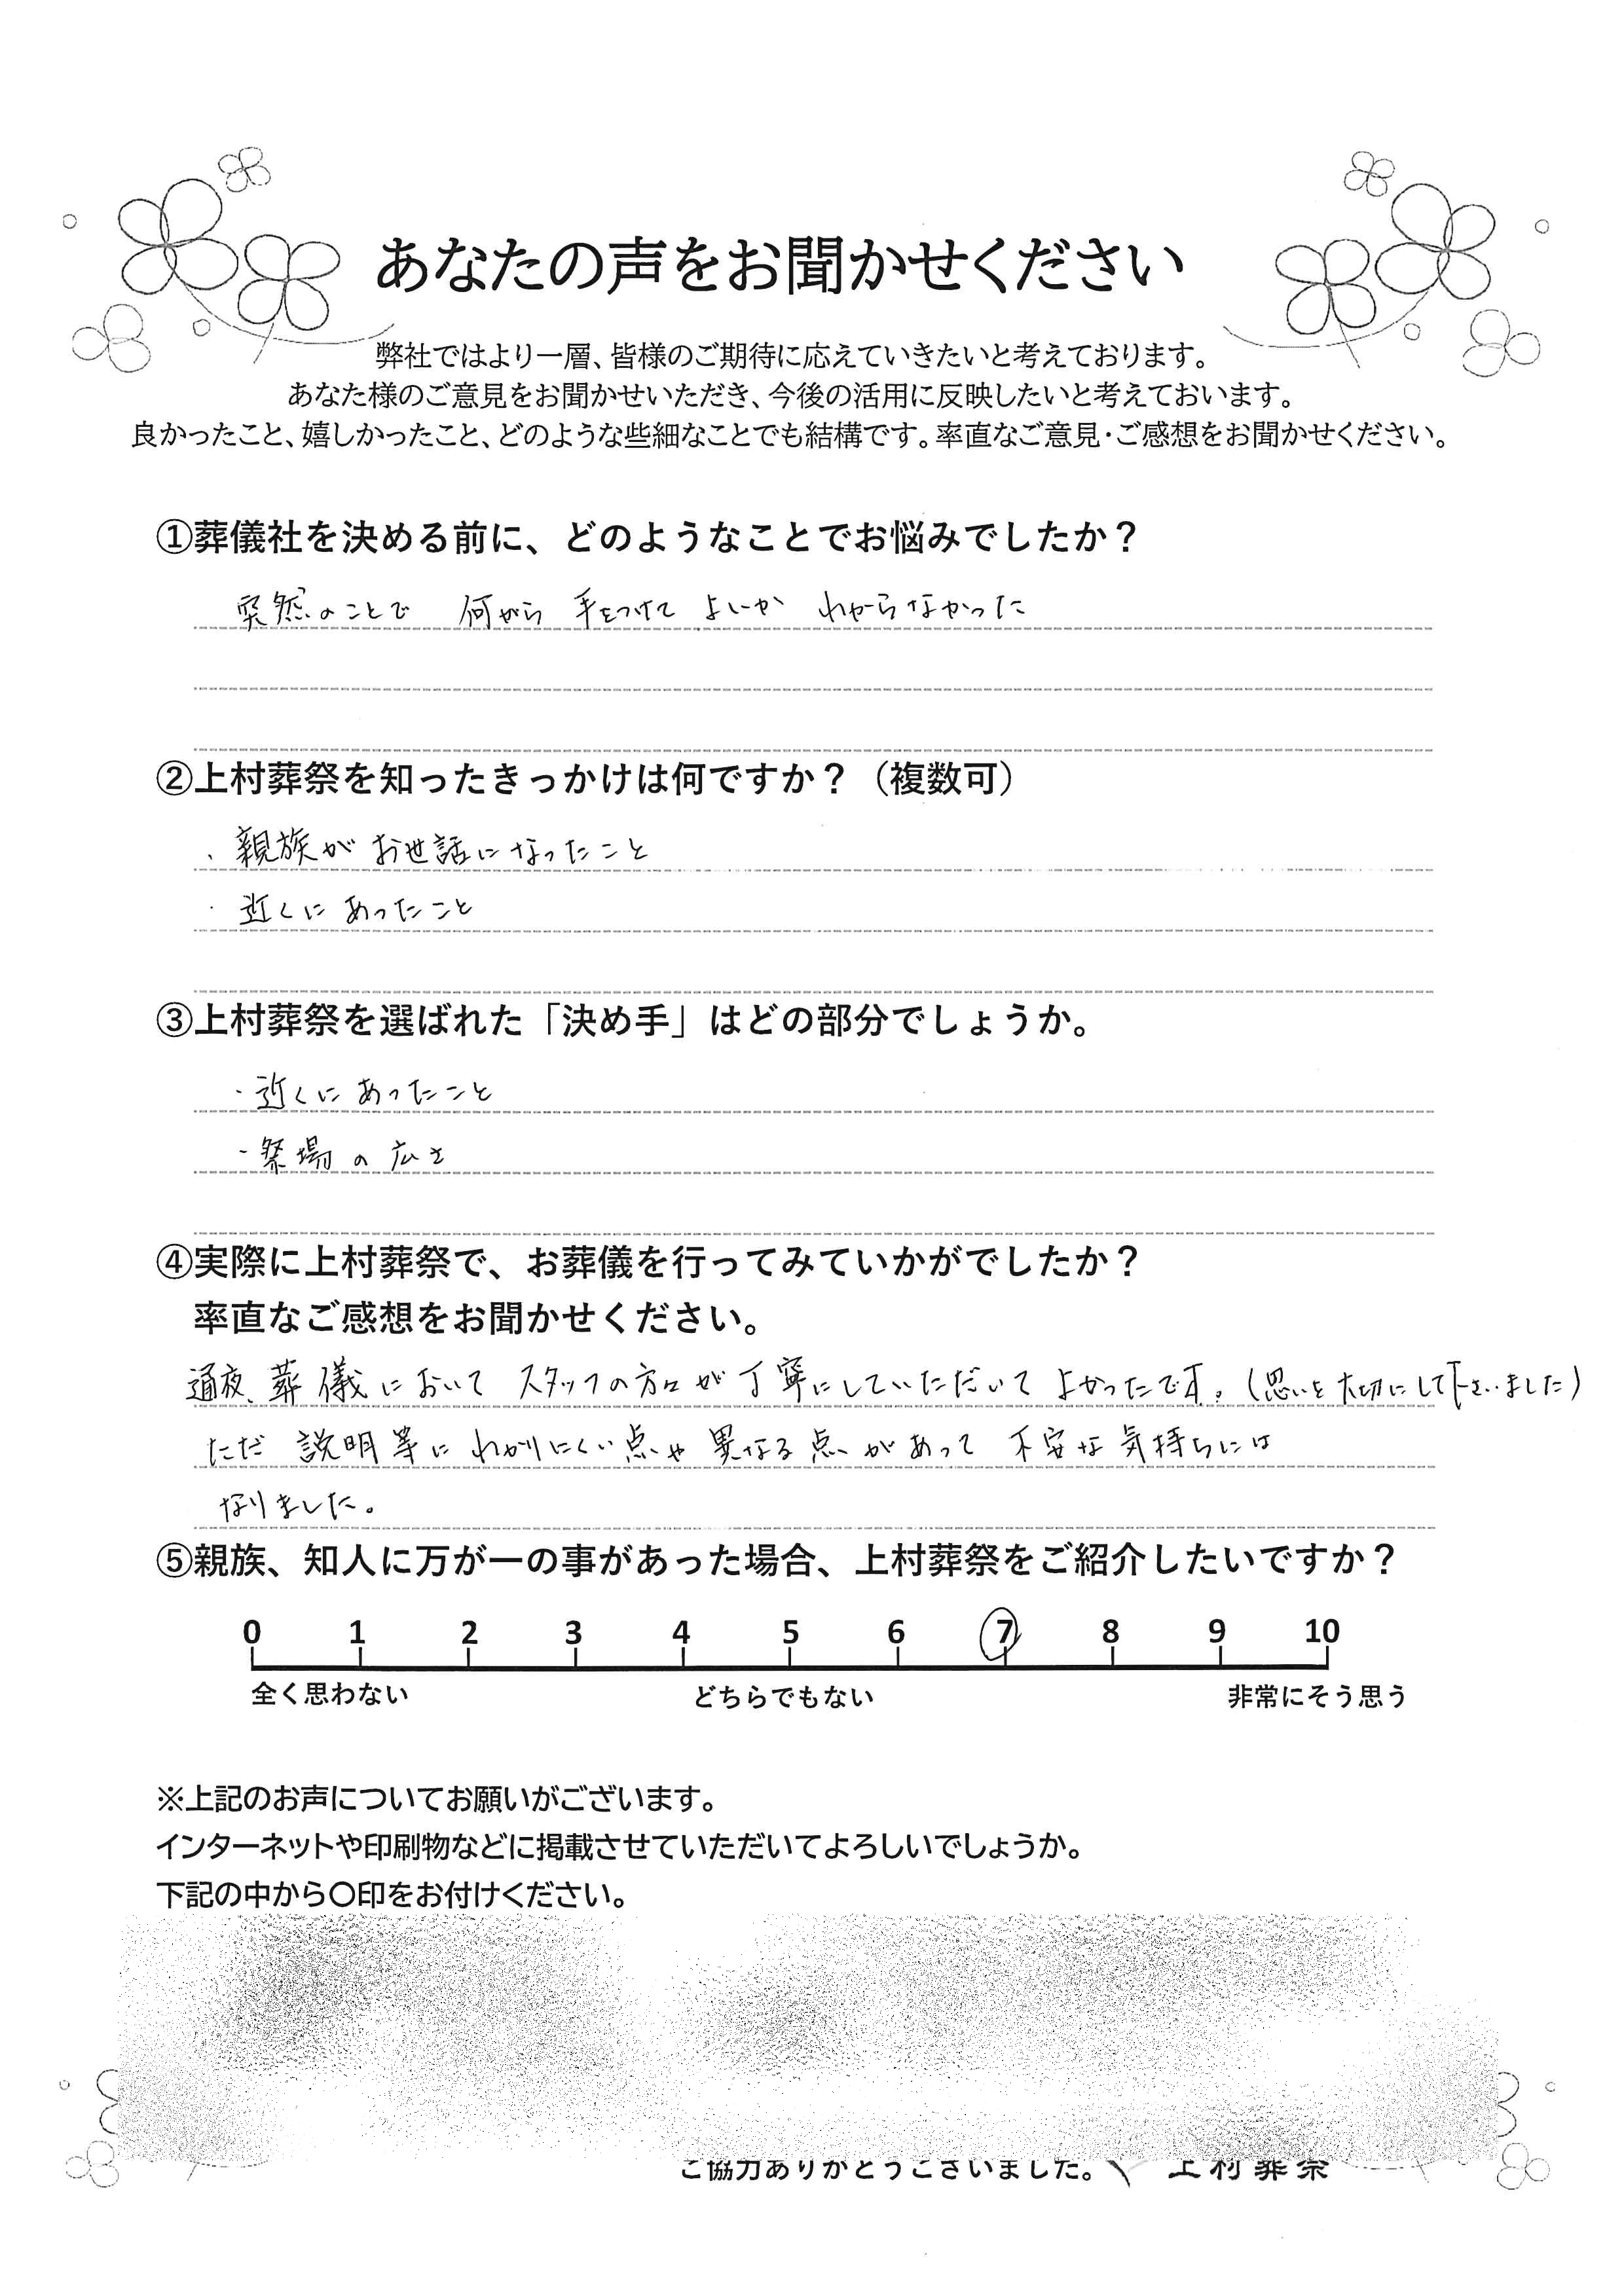 あなたの声をお聞かせください
弊社ではより一層、皆様のご期待に応えていきたいと考えております。
あなた様のご意見をお聞かせいただき、今後の活用に反映したいと考えておいます。
良かったこと、嬉しかったこと、どのような些細なことでも結構です。率直なご意見・ご感想をお聞かせください。
①葬儀社を決める前に、どのようなことでお悩みでしたか？
突然のことで 何から 手をつけて よいか わからなかった
②上村葬祭を知ったきっかけは何ですか？（複数可）
・親族が お世話に なったこと
・近くに あったこと
③上村葬祭を選ばれた「決め手」はどの部分でしょうか。
・近くに あったこと
・祭場の 広さ
④実際に上村葬祭で、お葬儀を行ってみていかがでしたか？
率直なご感想をお聞かせください。
通夜、葬儀において スタッフの方々が丁寧にしていただいて よかったです。（思いを大切にして下さいました）
ただ 説明等に わかりにくい点や 異なる点があって 不安な気持ちには
なりました。
⑤親族、知人に万が一の事があった場合、上村葬祭をご紹介したいですか？
0 1 2 3 4 5 6 7 8 9 10
全く思わない どちらでもない 非常にそう思う
※上記のお声についてお願いがございます。
インターネットや印刷物などに掲載させていただいてよろしいでしょうか。
下記の中から〇印をお付けください。
ご協力ありがとうございました。 上村葬祭